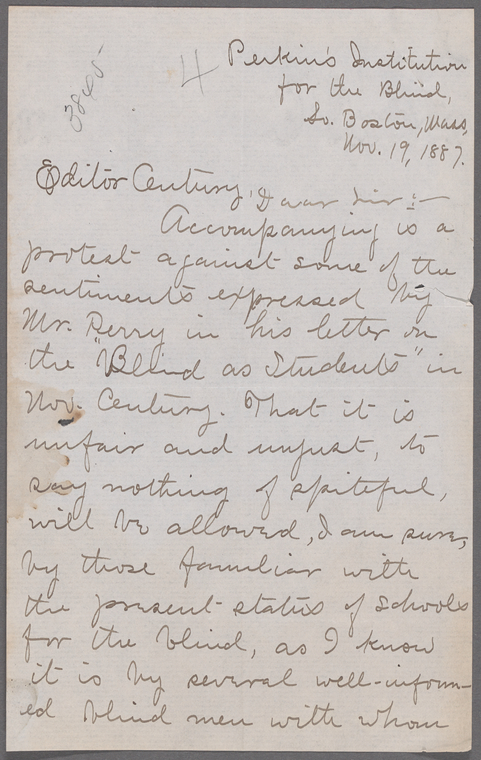 38405
4
Perkin's Institution
for the Blind,
So. Boston, Mass,
Nov. 19, 1887.
Editor Century, Dear Sir:—
Accompanying is a
protest against some of the
sentiments expressed by
Mr. Perry in his letter on
the "Blind as Students" in
Nov. Century. That it is
unfair and unjust, to
say nothing of spiteful,
will be allowed, I am sure,
by those familiar with
the present status of schools
for the blind, as I know
it is by several well-inform-
ed blind men with whom